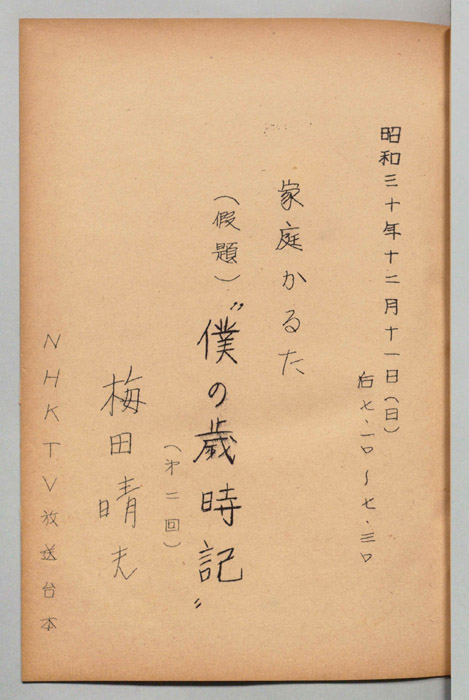 昭和三十年十二月十一日(日)
后七・一〇～七・三〇
家庭かるた
(假題)〝僕の歳時記〟
(才二回)
梅田晴夫
NHKTV放送台本